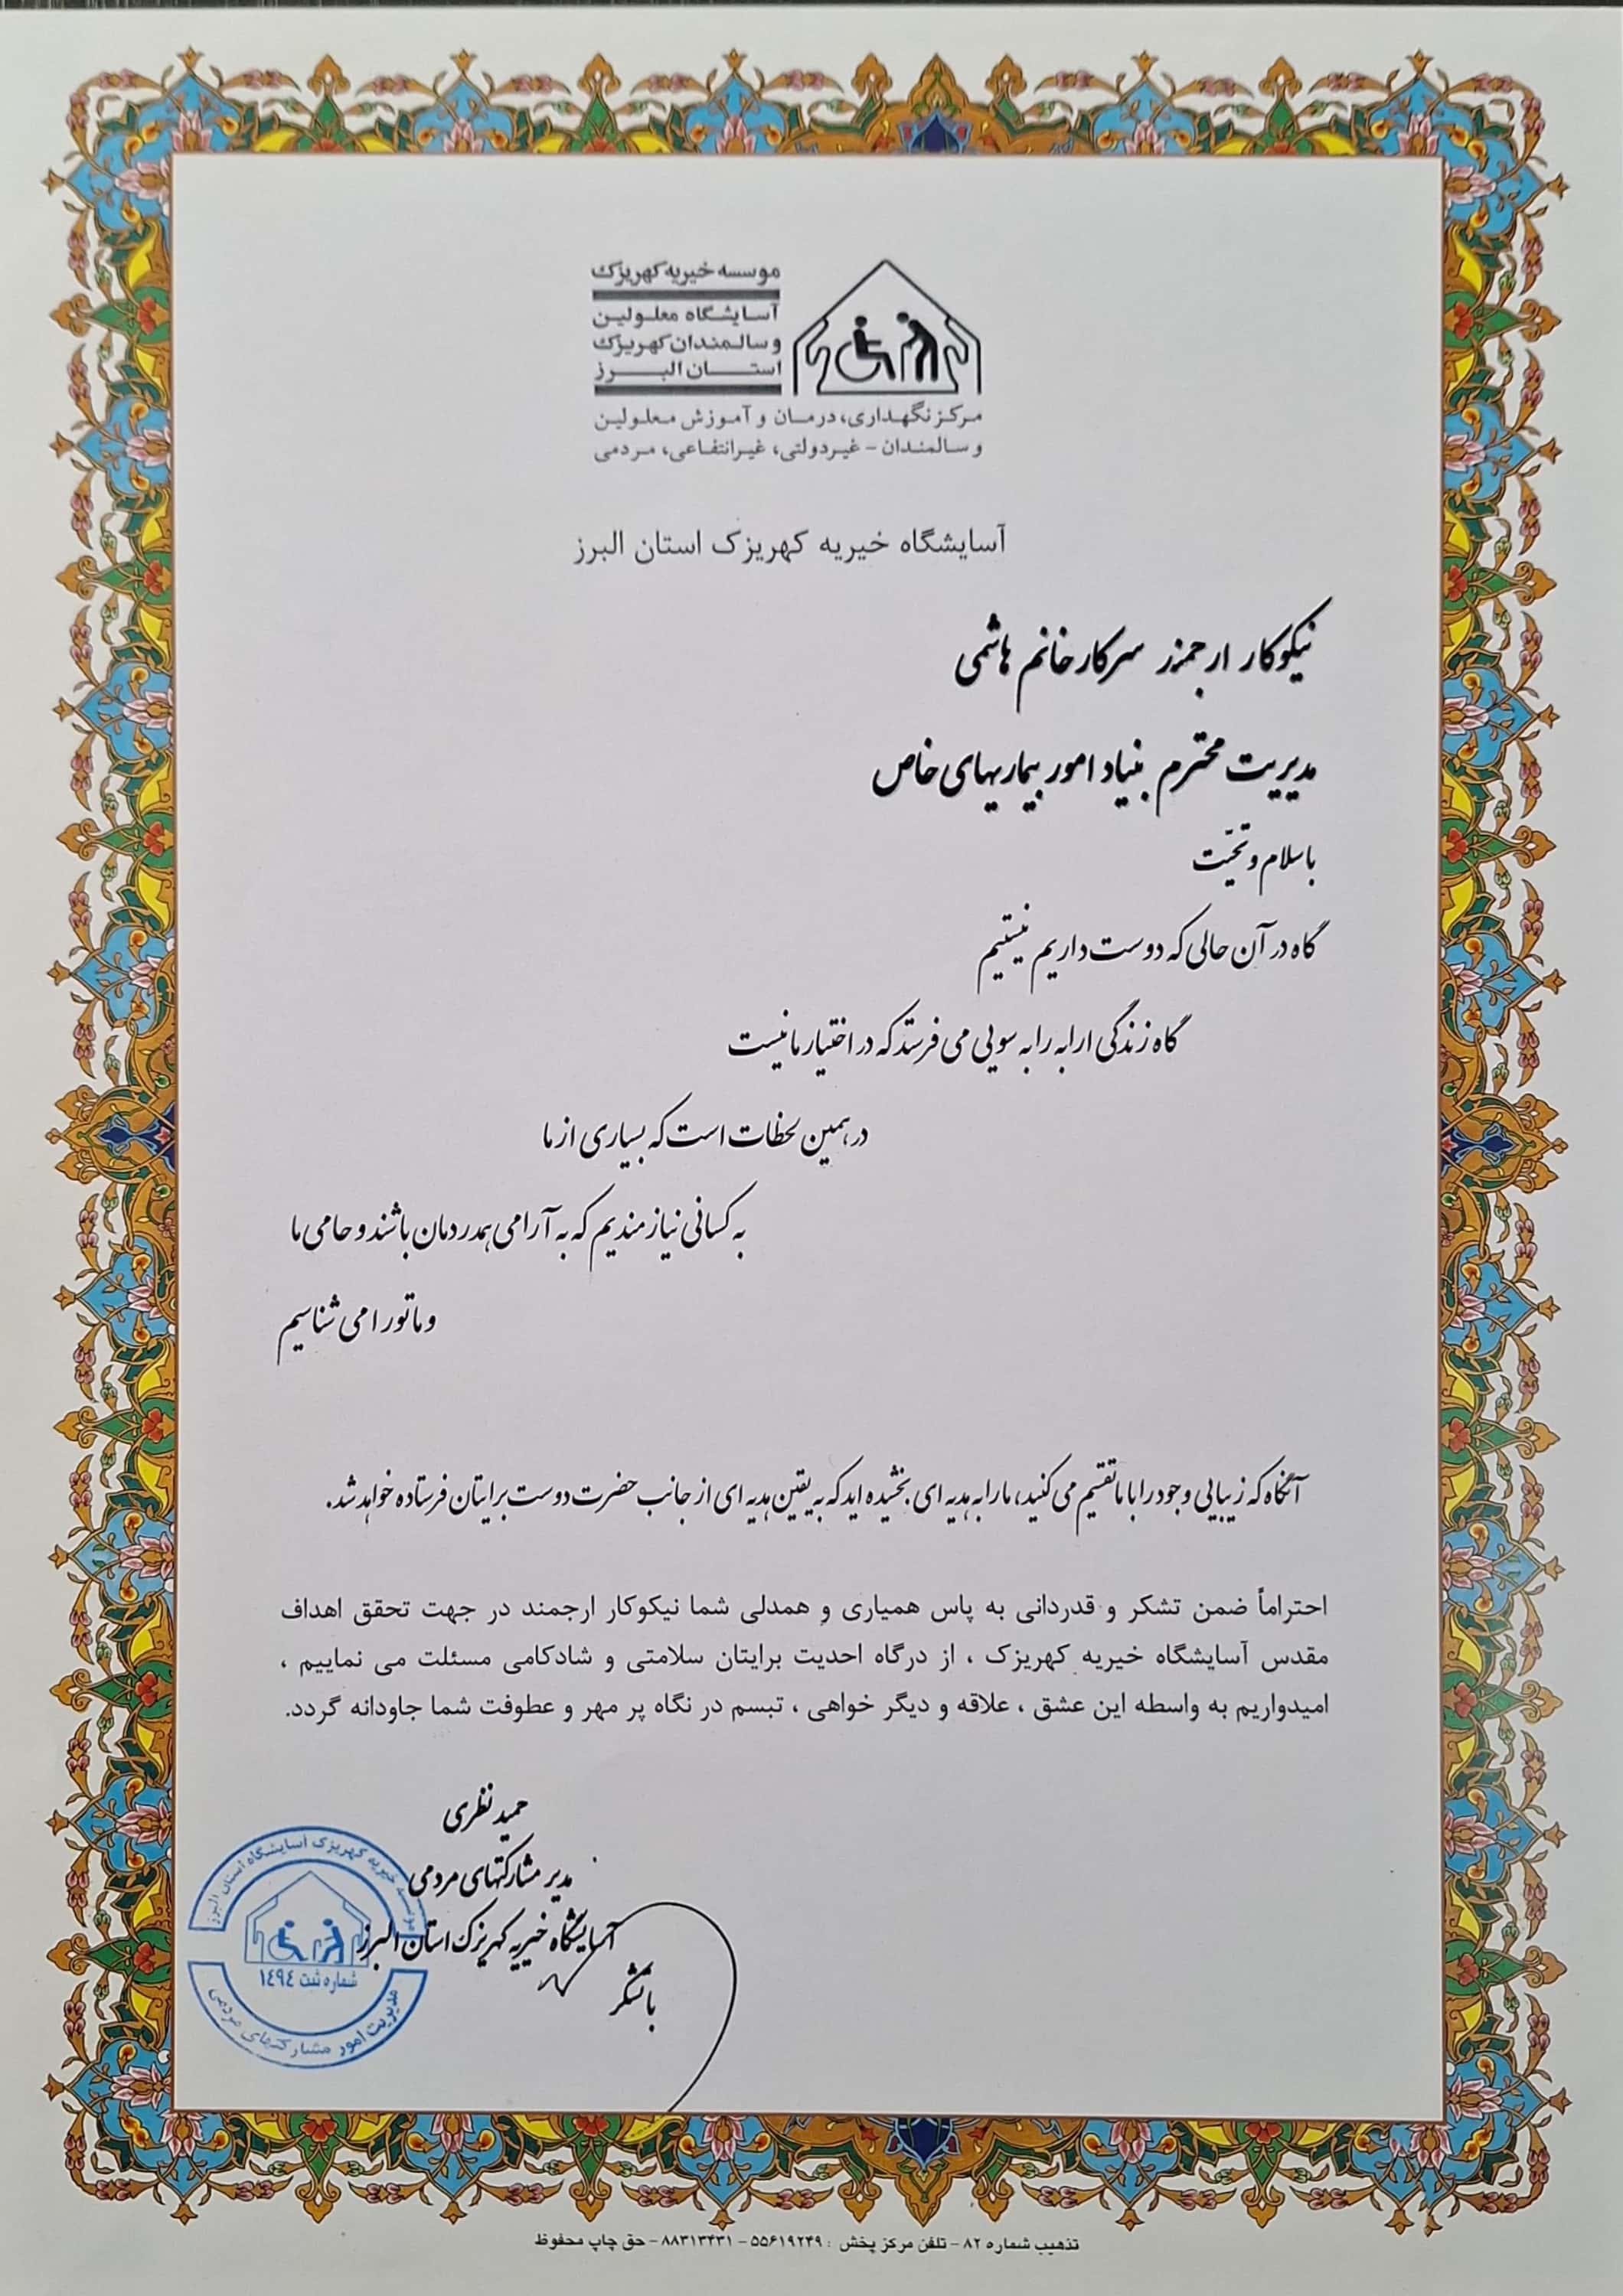 موسسه خیریه کهریزک
آسایشگاه معلولین
و سالمندان کهریزک
استان البرز
مرکز نگهداری، درمان و آموزش معلولین
و سالمندان - غیردولتی، غیرانتفاعی، مردمی
آسایشگاه خیریه کهریزک استان البرز
نیکوکار ارجمند سرکار خانم هاشمی
مدیریت محترم بنیاد امور بیماریهای خاص
با سلام و تحیّت
گاه در آن حالی که دوست داریم نیستیم
گاه زندگی ارابه را به سویی می فرستد که در اختیار ما نیست
در همین لحظات است که بسیاری از ما
به کسانی نیازمندیم که به آرامی همدردمان باشند و حامی ما
و ما تو را می شناسیم
آنگاه که زیبایی وجود را با ما تقسیم می کنید، ما را به هدیه ای بخشیده اید که به یقین هدیه ای از جانب حضرت دوست برایتان فرستاده خواهد شد.
احتراماً ضمن تشکر و قدردانی به پاس همیاری و همدلی شما نیکوکار ارجمند در جهت تحقق اهداف
مقدس آسایشگاه خیریه کهریزک ، از درگاه احدیت برایتان سلامتی و شادکامی مسئلت می نماییم ،
امیدواریم به واسطه این عشق ، علاقه و دیگر خواهی ، تبسم در نگاه پر مهر و عطوفت شما جاودانه گردد.
حمید نظری
مدیر مشارکتهای مردمی
آسایشگاه خیریه کهریزک استان البرز
با تشکر
موسسه خیریه کهریزک آسایشگاه استان البرز
شماره ثبت ۱٤۹٤
مدیریت امور مشارکتهای مردمی
تذهیب شماره ۸۲ - تلفن مرکز پخش : ۵۵۶۱۹۲۴۹ - ۸۸۳۱۳۴۳۱ - حق چاپ محفوظ